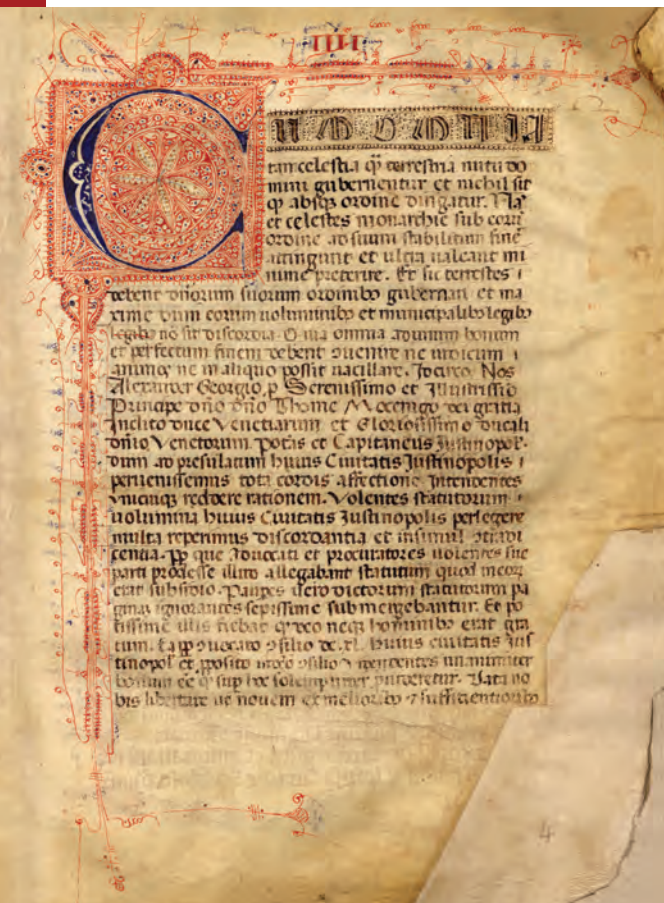 IIII
C UM OMNIA
tam celestia qȝ terrestria nutu do
mini gubernentur et nichil sit
qȝ absqȝ ordine dirigatur. Nā
et celestes monarchie sub
ordine ad suum stabilitum finē
attingunt et ultra ualeant mi
nime preterire. Et sic terrestes i
debent dn̄orum suorum ordinibȝ gubernari et ma
xime dum eorum uoluminibȝ et municipalibȝ legibȝ
legibȝ nō sit discordia omnia ad unum bonum
et perfectum finem debent ne
ne in aliquo possit uacillare. Idcirco Nos
Alexander Georgio. p Serenissimo et Illustrissīo
Principe dn̄o dn̄o Thome Mocenigo dei gratia
Inclito duce Venetiarum et Gloriosissimo ducali
dn̄io Venetorum potās et Capitaneus Iustinopol.
dum ad presulatum huius Ciuitatis Iustinopolis i
peruenissemus tota cordis affectione Intendentes
unicuiqȝ reddere rationem. Volentes statutorum i
uolumina huius Ciuitatis Iustinopolis perlegere
multa reperimus discordantia et insimul
centia. pp que Aduocati et procuratores uolentes sue
parti prodesse illud allegabant statutum quod
erat subsidio. uero dictorum statutorum pa
ginas ignorantes sepissime submergebantur. Et po
tissime illis fiebat qȝ deo necqȝ hominibȝ erat gra
tum. 9silio de .xl. huius ciuitatis Jus
tinopol et 9silio unanimiter
bonum eē qȝ sup hoc solempniter Dati no
bis libertate ut nouem ex melioribȝ 7 sufficientioribȝ
4